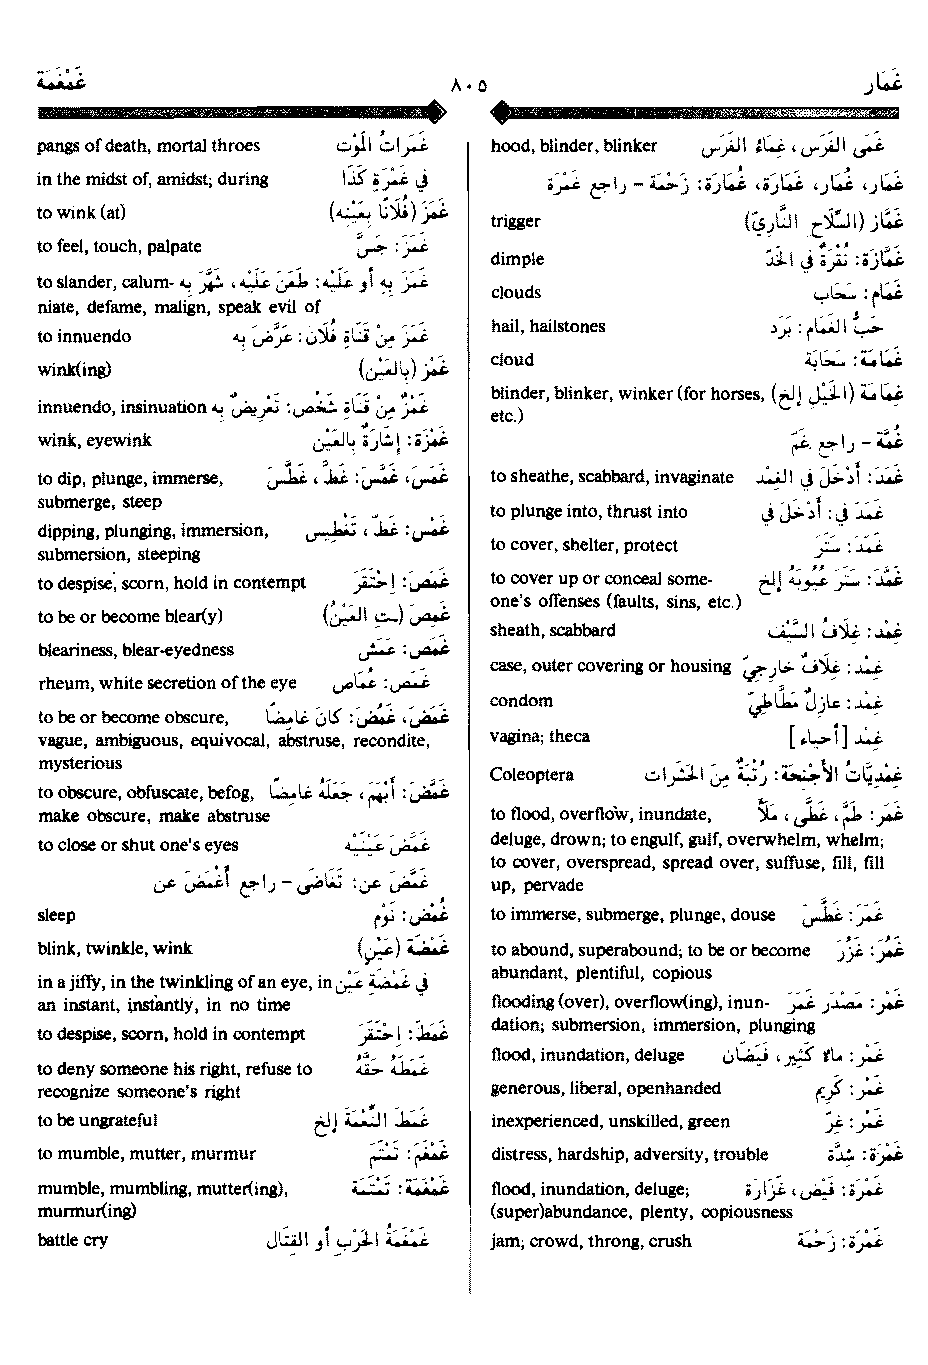 غَمَار ٨٠٥ غَمْغَمَة
hood, blinder, blinker غَمَى الفَرَس، غِمَاءُ الفَرَس
غَمَار، غُمَار، غَمَارَة، غُمَارَة: زَحْمَة - راجع غَمْرَة
trigger غَمَّاز (السِّلَاحِ النَّارِيّ)
dimple غَمَّازَة: نُقْرَةٌ في الخَدّ
clouds غَمَام: سَحَاب
hail, hailstones حَبُّ الغَمَام: بَرَد
cloud غَمَامَة: سَحَابَة
blinder, blinker, winker (for horses, غَمَامَة (الخَيْلِ إلخ)
etc.)
غُمَّة - راجع غَمّ
to sheathe, scabbard, invaginate غَمَدَ: أَدْخَلَ في الغِمْد
to plunge into, thrust into غَمَدَ في: أَدْخَلَ في
to cover, shelter, protect غَمَدَ: سَتَرَ
to cover up or conceal some- غَمَّدَ: سَتَرَ عُيُوبَهُ إلخ
one's offenses (faults, sins, etc.)
sheath, scabbard غِمْد: غِلَافُ السَّيْف
case, outer covering or housing غِمْد: غِلَافٌ خَارِجِيّ
condom غِمْد: عَازِلٌ مَطَّاطِيّ
vagina; theca غِمْد [أحياء]
Coleoptera غِمْدِيَّاتُ الأَجْنِحَة: رُتْبَةٌ مِنَ الحَشَرَات
to flood, overflow, inundate, غَمَرَ: طَمَّ، غَطَّى، مَلَأَ
deluge, drown; to engulf, gulf, overwhelm, whelm;
to cover, overspread, spread over, suffuse, fill, fill
up, pervade
to immerse, submerge, plunge, douse غَمَرَ: غَطَّسَ
to abound, superabound; to be or become غَمُرَ: غَزُرَ
abundant, plentiful, copious
flooding (over), overflow(ing), inun- غَمْر: مَصْدَر غَمَرَ
dation; submersion, immersion, plunging
flood, inundation, deluge غَمْر: مَاءٌ كَثِير، فَيَضَان
generous, liberal, openhanded غَمْر: كَرِيم
inexperienced, unskilled, green غَمْر: غِرّ
distress, hardship, adversity, trouble غَمْرَة: شِدَّة
flood, inundation, deluge; غَمْرَة: فَيْض، غَزَارَة
(super)abundance, plenty, copiousness
jam; crowd, throng, crush غَمْرَة: زَحْمَة
pangs of death, mortal throes غَمَرَاتُ المَوْت
in the midst of, amidst; during في غَمْرَةِ كَذَا
to wink (at) غَمَزَ (فُلَانًا بِعَيْنِهِ)
to feel, touch, palpate غَمَزَ: جَسَّ
to slander, calum- غَمَزَ بِهِ أو عَلَيْهِ: طَعَنَ عَلَيْهِ، شَهَّرَ بِهِ
niate, defame, malign, speak evil of
to innuendo غَمَزَ مِنْ قَنَاةِ فُلَان: عَرَّضَ بِهِ
wink(ing) غَمْز (بِالعَيْن)
innuendo, insinuation غَمْزٌ مِنْ قَنَاةِ شَخْص: تَعْرِيضٌ بِهِ
wink, eyewink غَمْزَة: إشَارَةٌ بِالعَيْن
to dip, plunge, immerse, غَمَسَ، غَمَّسَ: غَطَّ، غَطَّسَ
submerge, steep
dipping, plunging, immersion, غَمْس: غَطّ، تَغْطِيس
submersion, steeping
to despise, scorn, hold in contempt غَمَصَ: إحْتَقَرَ
to be or become blear(y) غَمِصَ (ـتِ العَيْنُ)
bleariness, blear-eyedness غَمَص: عَمَش
rheum, white secretion of the eye غَمَص: غُمَاص
to be or become obscure, غَمَضَ، غَمُضَ: كَانَ غَامِضًا
vague, ambiguous, equivocal, abstruse, recondite,
mysterious
to obscure, obfuscate, befog, غَمَّضَ: أَبْهَمَ، جَعَلَهُ غَامِضًا
make obscure, make abstruse
to close or shut one's eyes غَمَّضَ عَيْنَيْهِ
غَمَّضَ عن: تَغَاضَى - راجع أَغْمَضَ عن
sleep غُمْض: نَوْم
blink, twinkle, wink غَمْضَة (عَيْنٍ)
in a jiffy, in the twinkling of an eye, in في غَمْضَةِ عَيْن
an instant, instantly, in no time
to despise, scorn, hold in contempt غَمَطَ: إحْتَقَرَ
to deny someone his right, refuse to غَمَطَهُ حَقَّهُ
recognize someone's right
to be ungrateful غَمَطَ النِّعْمَةَ إلخ
to mumble, mutter, murmur غَمْغَمَ: تَمْتَمَ
mumble, mumbling, mutter(ing), غَمْغَمَة: تَمْتَمَة
murmur(ing)
battle cry غَمْغَمَةُ الحَرْبِ أو القِتَال